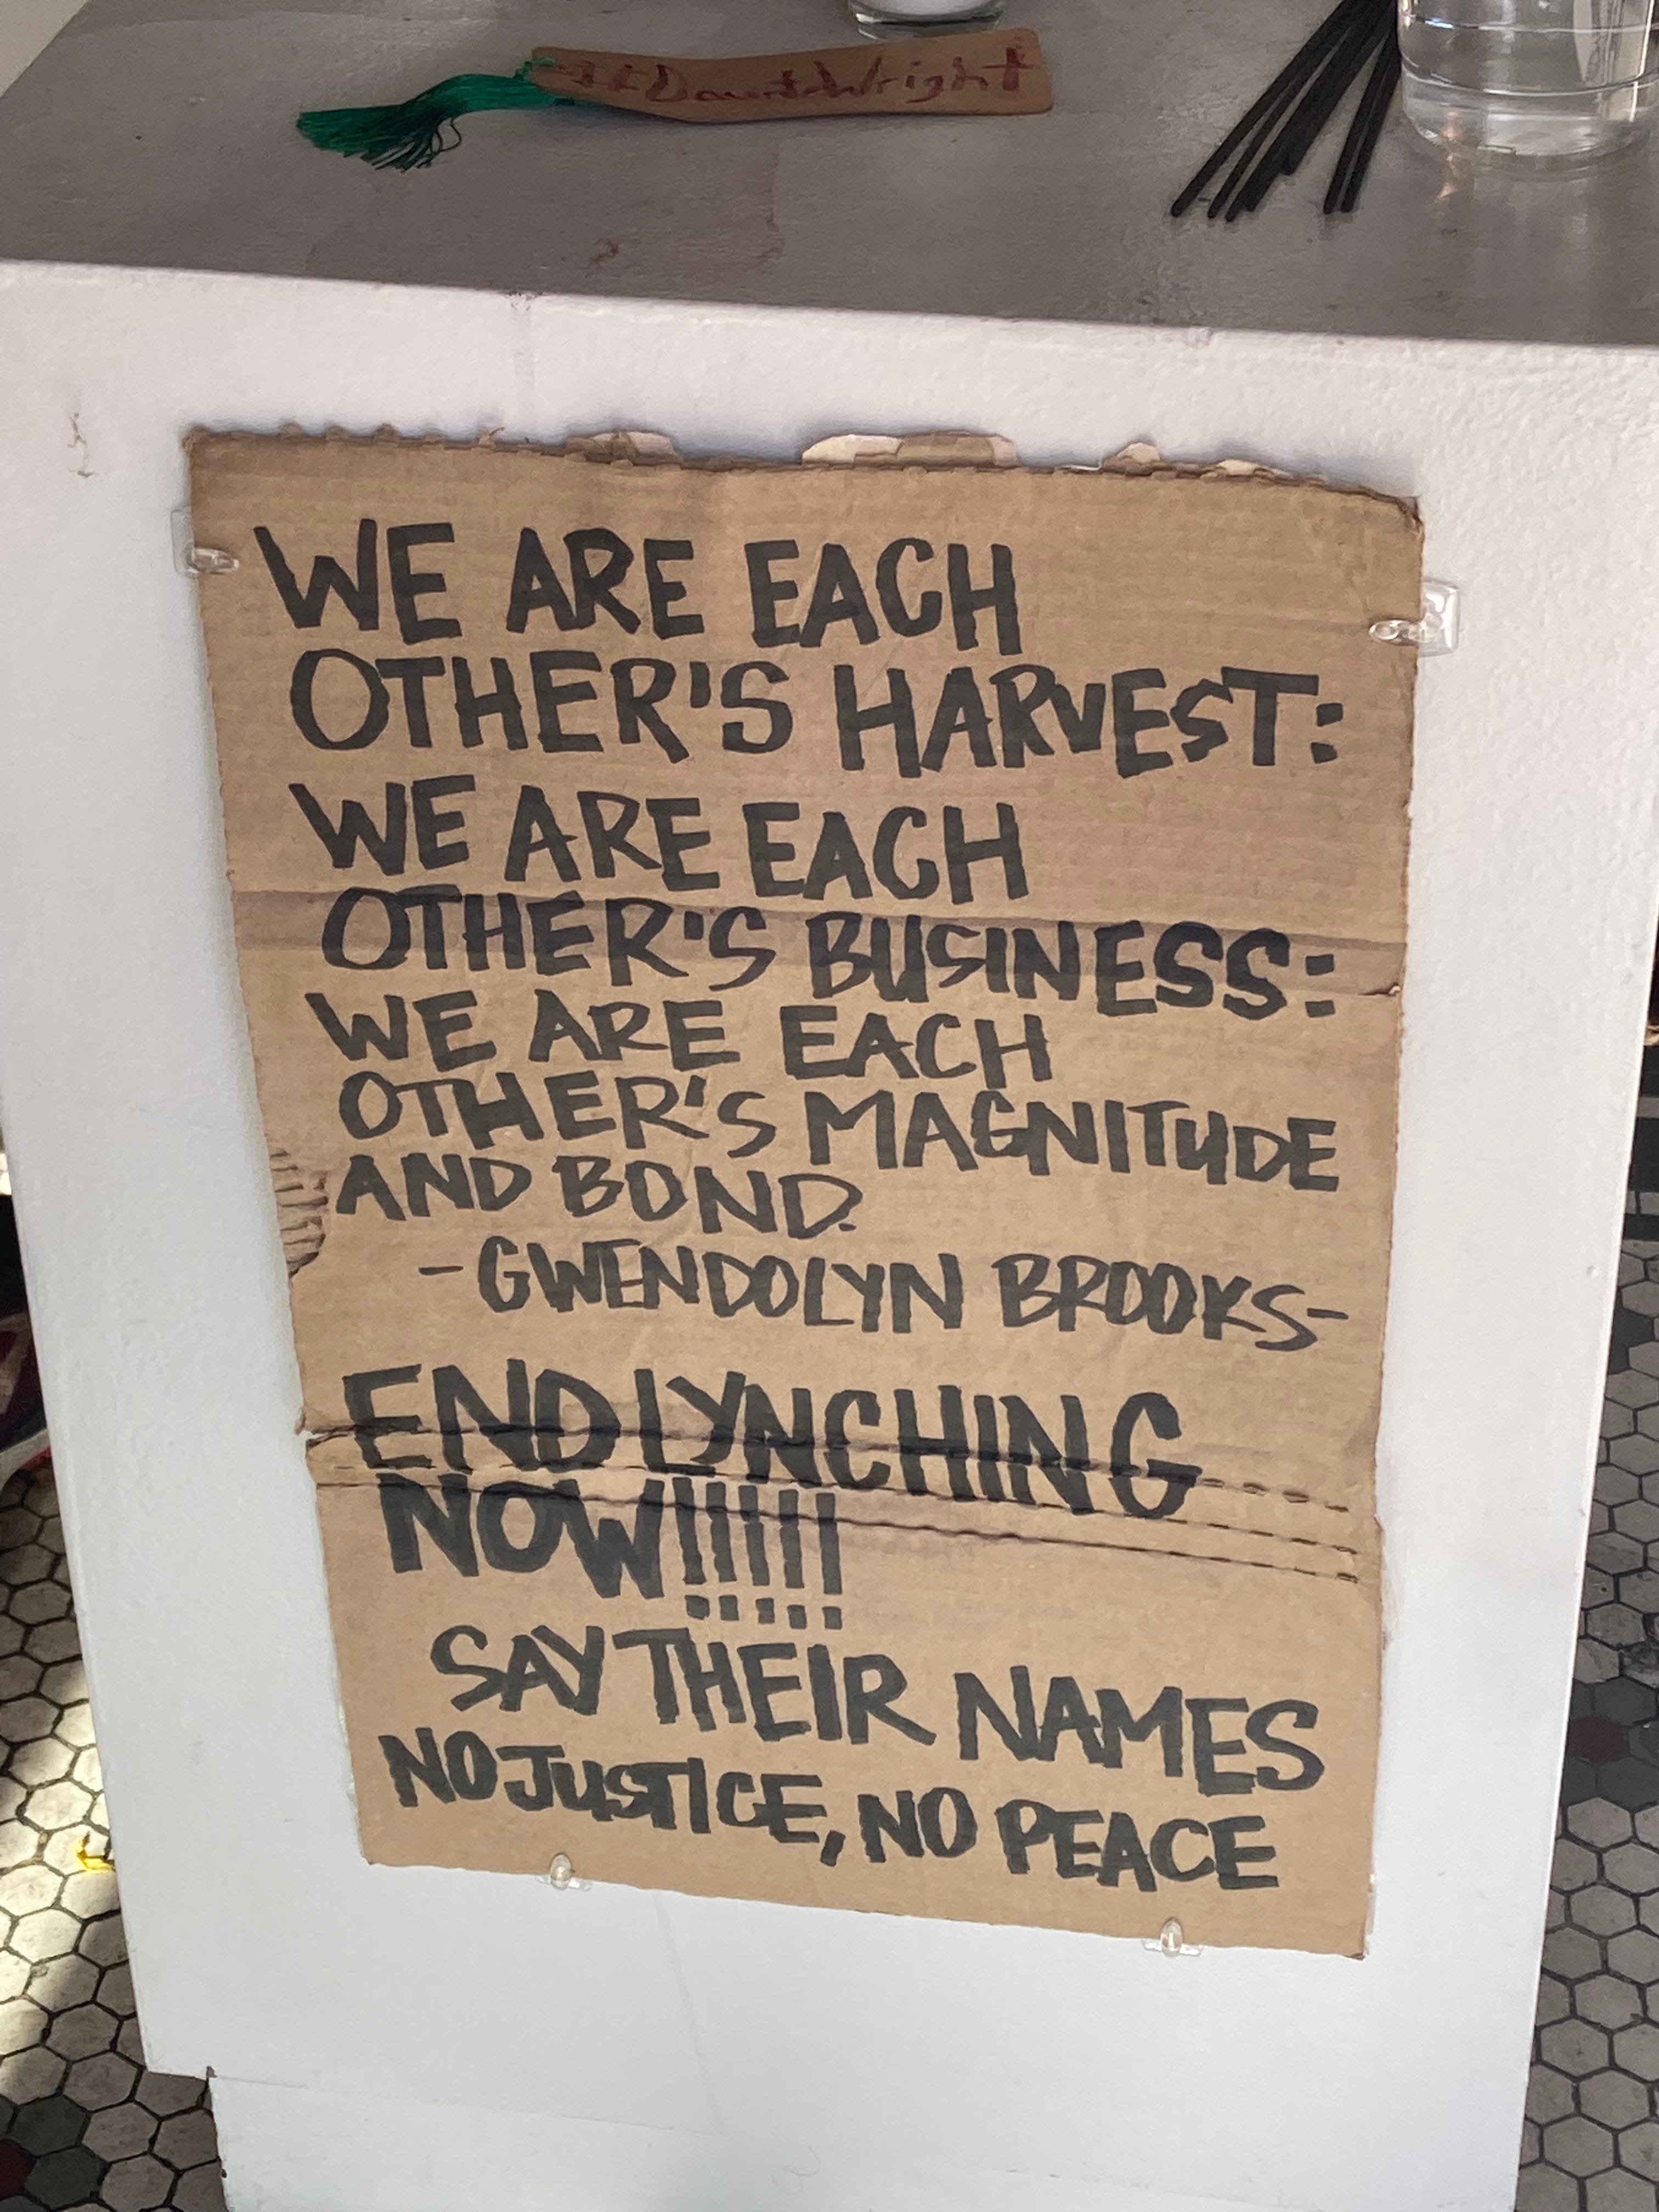 #DaunteWright
WE ARE EACH
OTHER'S HARVEST:
WE ARE EACH
OTHER'S BUSINESS:
WE ARE EACH
OTHER'S MAGNITUDE
AND BOND.
-GWENDOLYN BROOKS-
END LYNCHING
NOW!!!!!
SAY THEIR NAMES
NO JUSTICE, NO PEACE